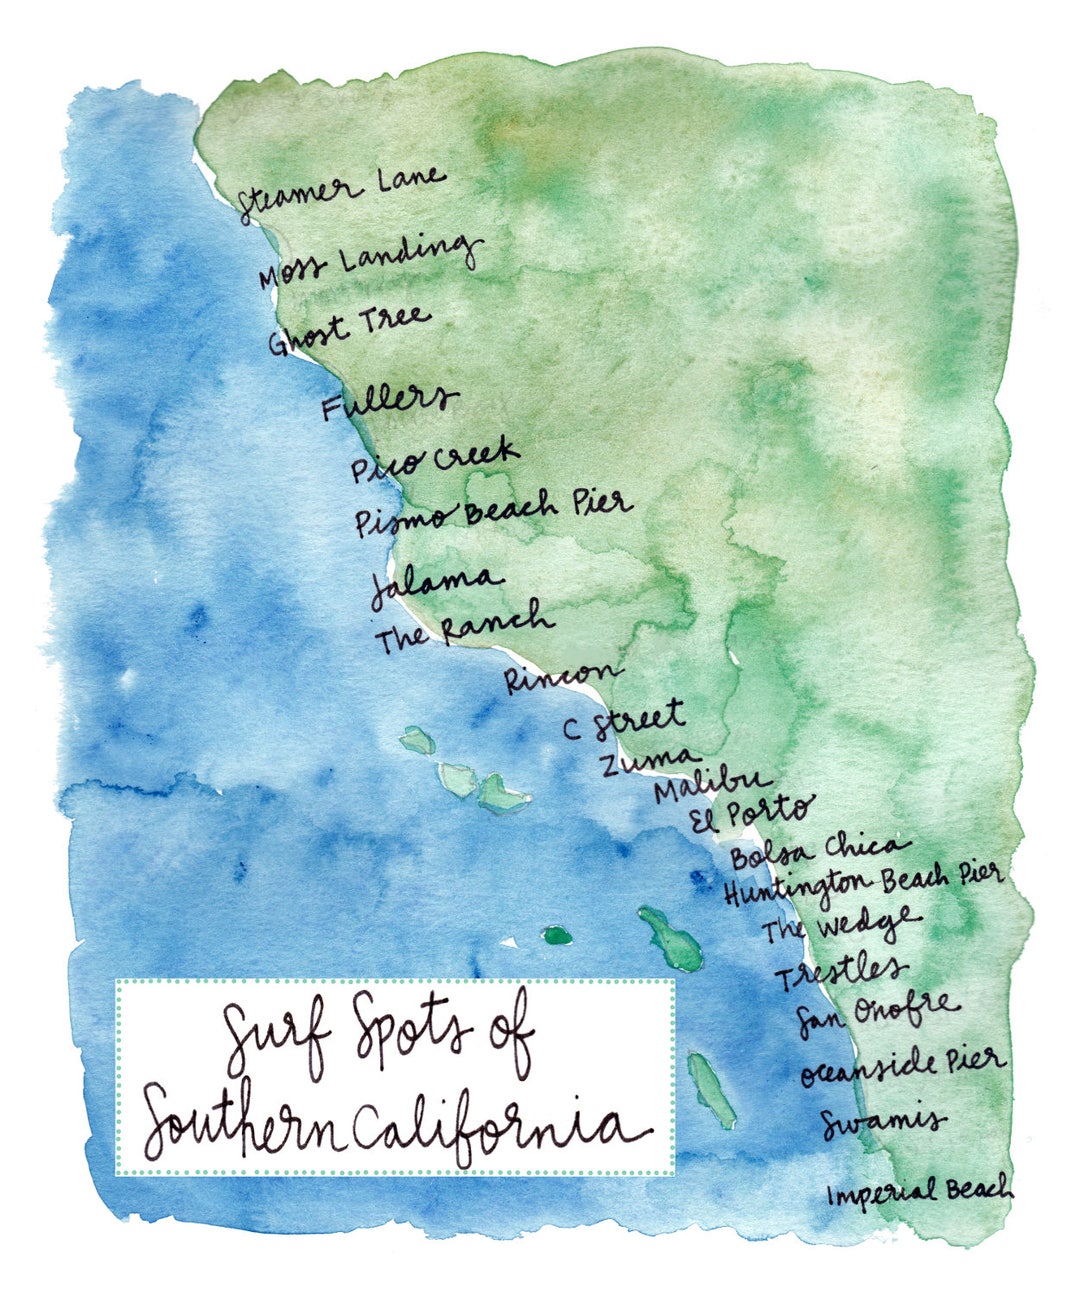 Steamer Lane
Moss Landing
Ghost Tree
Fullers
Pico Creek
Pismo Beach Pier
Jalama
The Ranch
Rincon
C Street
Zuma
Malibu
El Porto
Bolsa Chica
Huntington Beach Pier
The Wedge
Trestles
San Onofre
Oceanside Pier
Swamis
Imperial Beach
Surf Spots of
Southern California